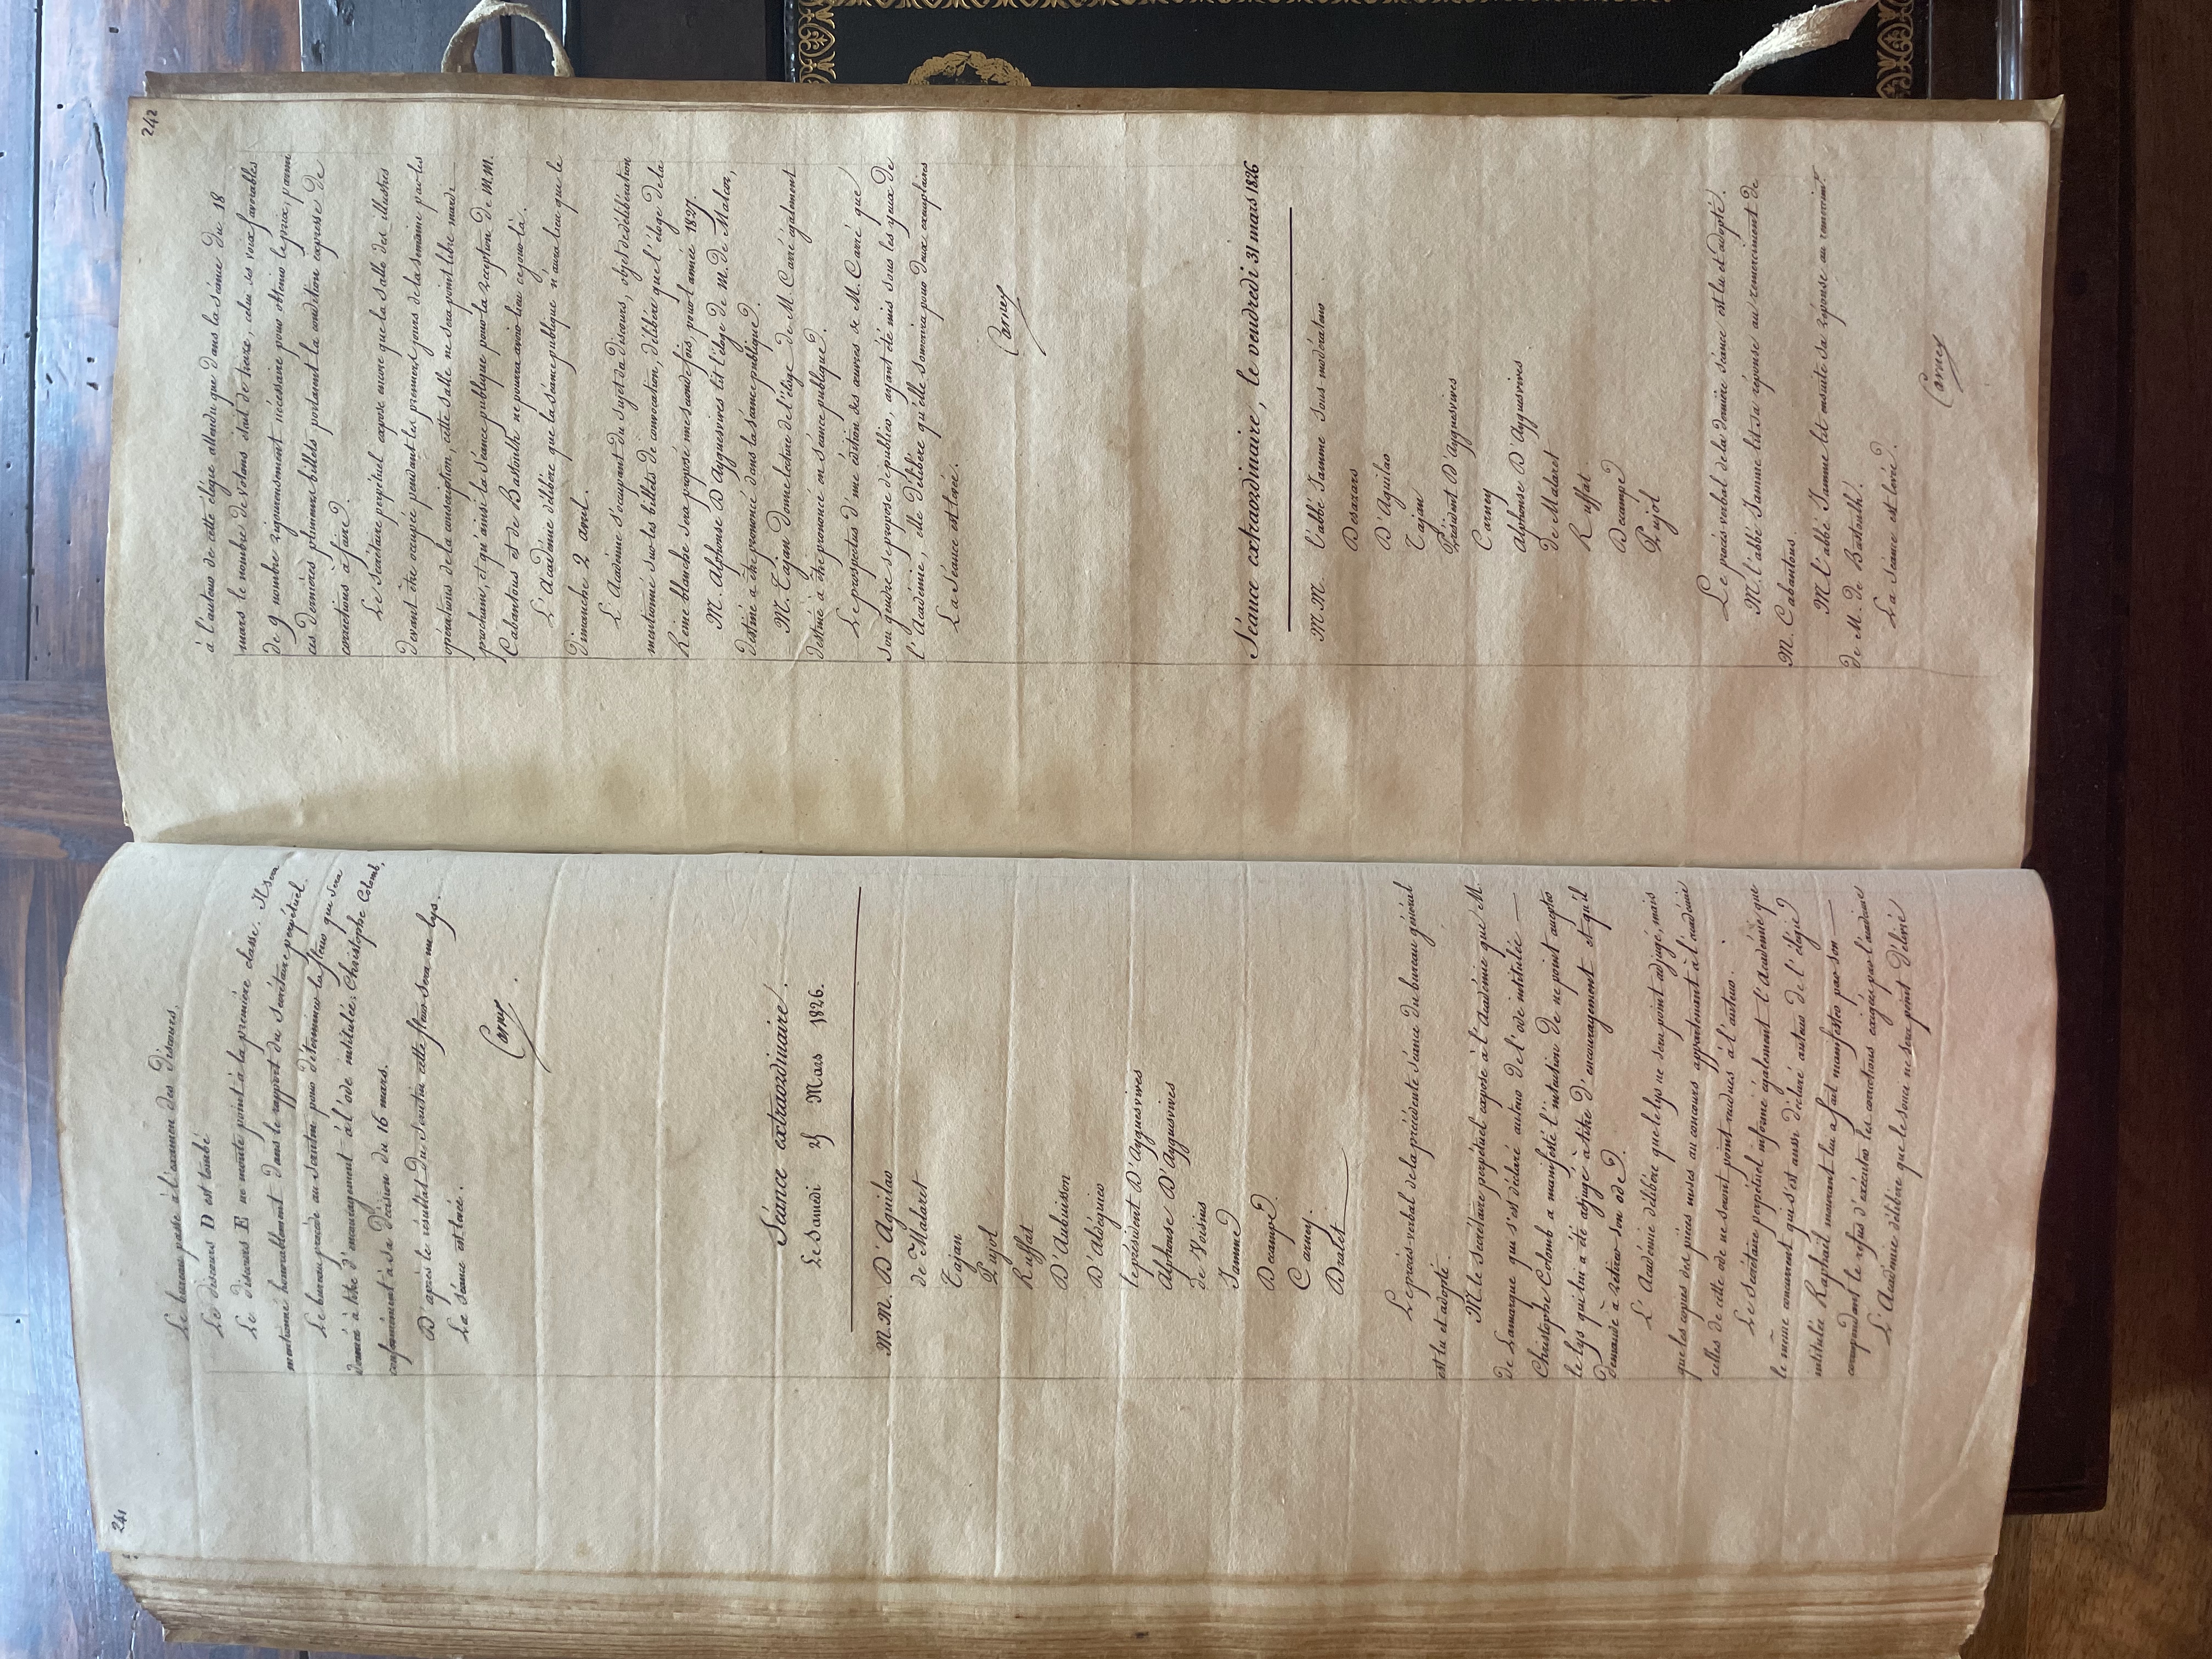 241
Le bureau passe à l'examen des discours.
Le discours D est tombé
Le discours E ne monte point à la première classe. Il sera
mentionné honorablement dans le rapport du Secrétaire perpétuel.
Le bureau procède au scrutin pour déterminer la fleur que sera
donnée à titre d'encouragement à l'ode intitulée: Christophe Colomb,
conformément à sa décision du 16 mars.
D'après le résultat du scrutin cette fleur sera un lys.
La séance est levée.
Carney
Séance extraordinaire.
Le Samedi 25 Mars 1826.
M.M. D'Aguilar
de Malaret
Tajan
Pujol
Ruffat
D'Aubuisson
D'Aldéguier
le président D'Ayguesvives
Alphonse D'Ayguesvives
de Voisins
Jamme
Decampe
Carney.
Dralet
Le procès-verbal de la précédente séance du bureau général
est lu et adopté.
M. le secrétaire perpétuel expose à l'Académie que M.
de Lamarque qui s'est déclaré auteur de l'ode intitulée
Christophe Colomb a manifesté l'intention de ne point accepter
le lys qui lui a été adjugé à titre d'encouragement et qu'il
demande à retirer son ode.
L'Académie délibère que le lys ne sera point adjugé, mais
que les copies des pièces mises au concours appartenant à l'académie
celles de cette ode ne seront point rendues à l'auteur.
Le Secrétaire perpétuel informe également l'Académie que
le même concurrent qui s'est aussi déclaré auteur de l'élégie
intitulée Raphaël mourant lui a fait manifester par son
correspondant le refus d'exécuter les corrections exigées par l'académie
L'Académie délibère que le souci ne sera point délivré
242
à l'auteur de cette élégie attendu que dans la séance du 18
mars le nombre de votans étant de treize, celui des voix favorables
de 9 nombre rigoureusement nécessaire pour obtenir le prix, parmi
ces dernières plusieurs billets portaient la condition expresse de
corrections à faire.
Le Secrétaire perpétuel expose encore que la salle des illustres
devant être occupée pendant les premiers jours de la semaine par les
opérations de la conscription, cette salle ne sera point libre mardi
prochain, et qu'ainsi la séance publique pour la réception de M.M.
Cabantous et de Bastoulh ne pourra avoir lieu ce jour-là.
L'Académie délibère que la séance publique n'aura lieu que le
dimanche 2 avril.
L'Académie s'occupant du sujet du discours, objet de délibération
mentionné sur les billets de convocation, délibère que l'éloge de la
Reine blanche sera proposé une seconde fois, pour l'année 1827.
M. Alphonse D'Ayguesvives lit l'éloge de M. de Malcor,
destiné à être prononcé dans la séance publique.
M. Tajan donne lecture de l'éloge de M. Carré également
destiné à être prononcé en séance publique.
Le prospectus d'une édition des œuvres de M. Carré que
son gendre se propose de publier, ayant été mis sous les yeux de
l'Académie, elle délibère qu'elle souscrira pour deux exemplaires
La séance est levée.
Carney
Séance extraordinaire, le vendredi 31 mars 1826
M.M. l'abbé Jamme sous-modérateur.
Desazars
D'Aguilar
Tajan
Président D'Ayguesvives
Carney
Alphonse D'Ayguesvives
de Malaret
Ruffat
Decampe
Pujol
Le procès-verbal de la dernière séance est lu et adopté.
M. l'abbé Jamme lit sa réponse au remerciment de
M. Cabantous.
M. l'abbé Jamme lit ensuite sa réponse au remerciment
de M. de Bastoulh.
La séance est levée.
Carney